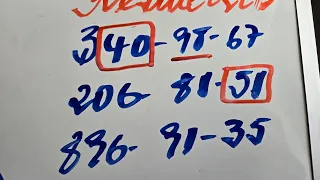 340-98-67
206- 81-51
896- 91-35